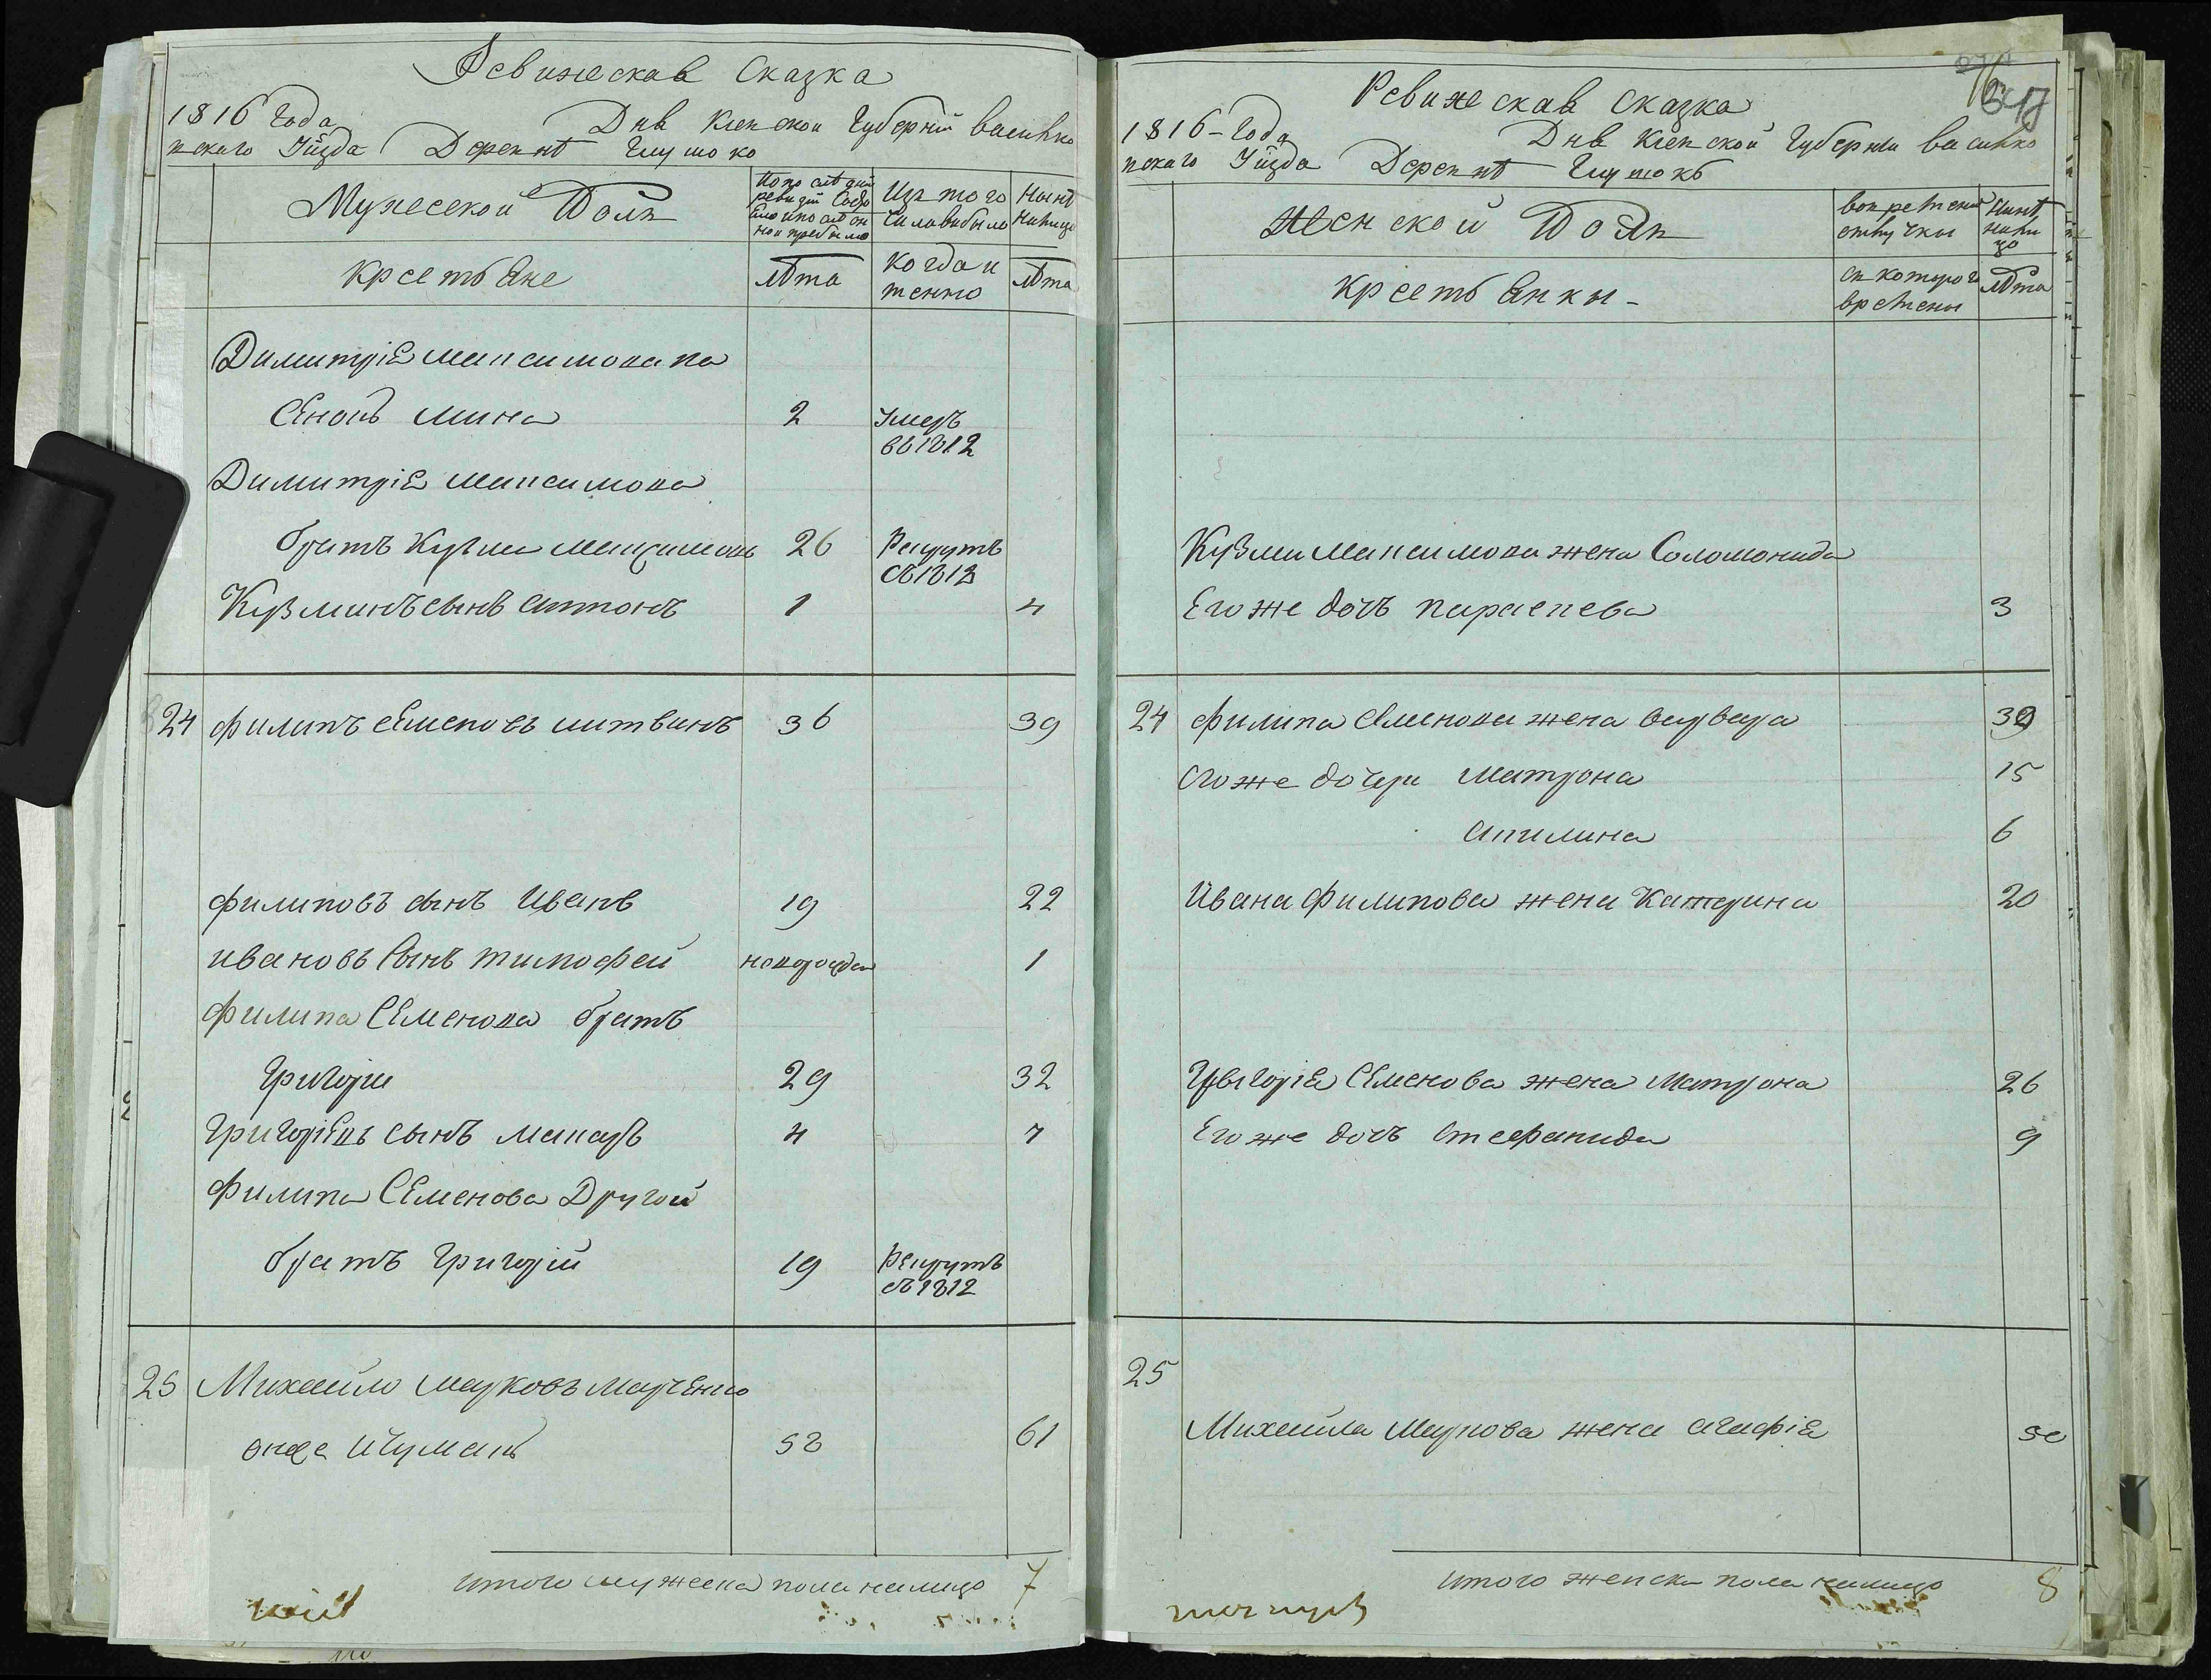 Ревижеская Сказка
1816 Года Дня Киевской Губерній василко
вскаго Уѣзда Деревнѣ
Мужеской Полъ
По последней ревизій Состояло и после оной прибыло
Изъ того числа выбыло
Нынѣ налицо
крестьяне
лѣта
когда именно
лѣта
Димитрія Максимова
сынъ Мина 2 умеръ
въ 1812
Димитрія максимова
братъ Кузма максимовъ 26 Рекрутъ
въ 1813
Кузминъ сынъ антонъ 1 4
24 филипъ семеновъ литвинъ 36 39
филиповъ сынъ Иванъ 19 22
ивановъ сынъ тимофей новорожден 1
филипа Семенова братъ
Григорій 29 32
Григоріевъ сынъ Макаръ 4 7
филипа Семенова Другой
братъ Григорій 19 Рекрутъ
въ 1812
25 Михайло Марковъ Марченко
онже 58 61
итого мужеска пола налицо 7
Ревижеская Сказка
1816-Года Дня Киевской Губерніи василко
вскаго Уѣзда Деревнѣ
женской Полъ
во временной отлучкы
Нинѣ налицо
крестьянкы-
съ которого времены
лѣта
Кузми Максимова жена Соломонида
Его же дочъ параскева 3
24 филипа Семенова жена варвара 39
его же дочери матрона 15
акилина 6
Ивана филипова жена Катерина 20
Григорія Семенова жена матрона 26
Его же дочъ Стефанида 9
25
Михайла Маркова жена агафія 50
итого женска пола налицо 8